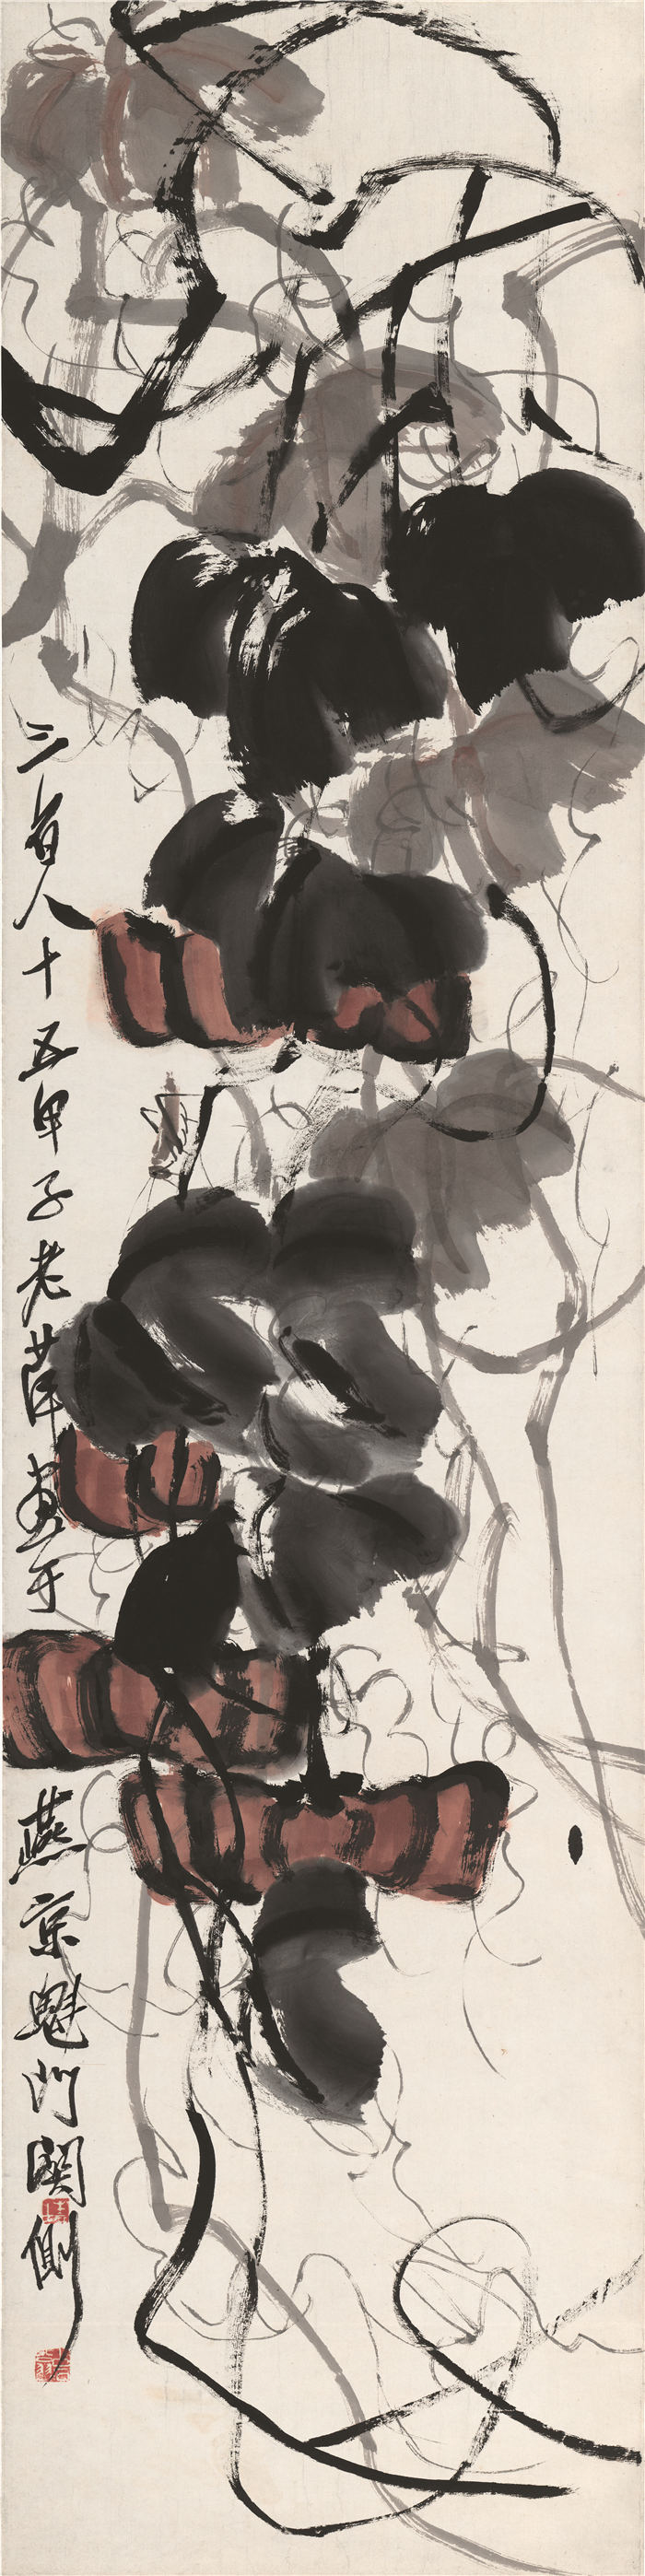 三百人十五甲子老萍画于
燕京魁门关侧